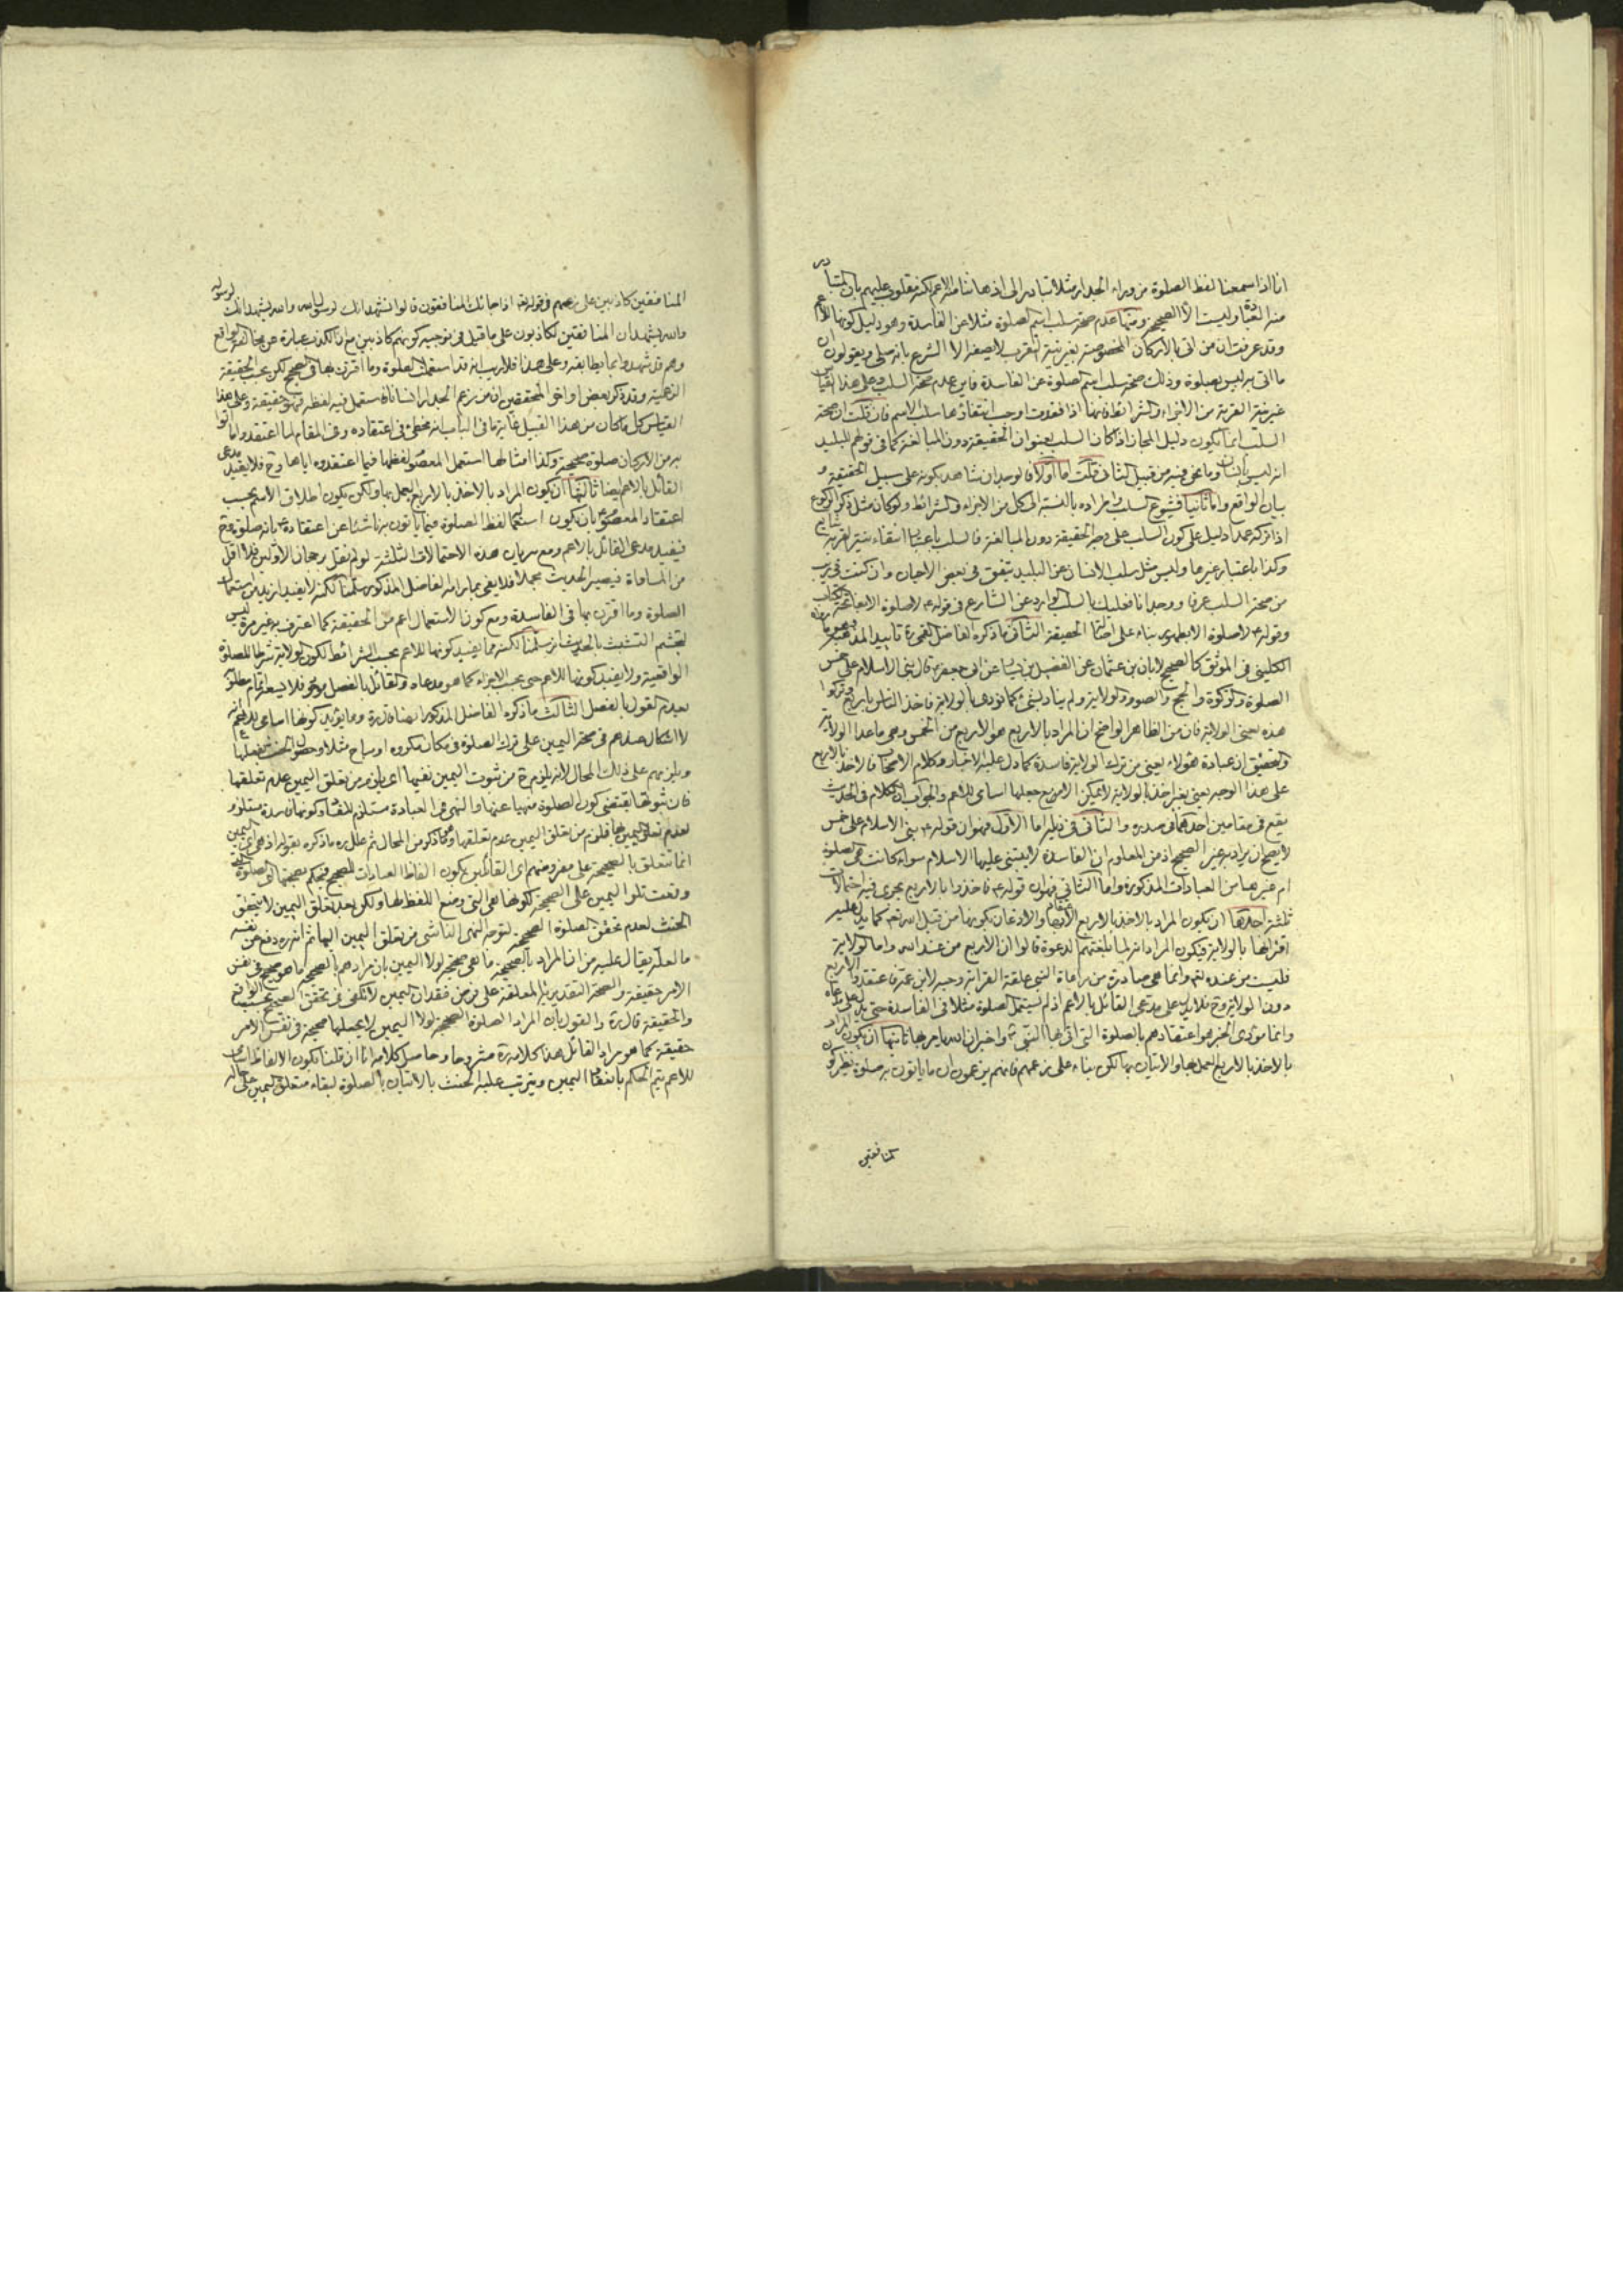 انا اذا سمعنا لفظ الصلوة من وراء الجدار مثلا تبادر الى اذهاننا منه الاعم لكنه مقلوب عليهم بان المتبادر
منه العبادة وليست الا الصحيحة ومنها عدم صحة سلب اسم الصلوة مثلا عن الفاسدة وهو دليل كونها للاعم
وقد عرفت ان من اتى بالاركان المخصوصة بغير نية التقرب لا يصفه الشرع بانه صلى ويقولون ان
ما اتى به ليس بصلوة وذلك صحة سلب اسم الصلوة عن الفاسدة فاين عدم صحة السلب وعلى هذا القياس
غير نية القربة من الاجزاء والشرائط فانها اذا فقدت اوجب انتفاؤها سلب الاسم فان قلت ان صحة
السلب انما يكون دليل المجاز اذا كان السلب بعنوان الحقيقة دون المبالغة كما في قولهم للبليد
انه ليس بانسان وما نحن فيه من قبيل الثاني قلت اما اولا فالوجدان شاهد بكونه على سبيل الحقيقة و
بيان الواقع واما ثانيا فشيوع السلب واطراده بالنسبة الى كل من الاجزاء والشرائط ولو كان مثل ذكر الركوع
اذا تركه عمدا دليل على كون السلب على وجه الحقيقة دون المبالغة فالسلب باعتبار انتفاء نية القربة شايع
وكذا باعتبار غيرها وليس مثل سلب الانسان عن البليد يتفق في بعض الاحيان وان كنت في ريب
من صحة السلب عرفا ووجدانا فعليك بالسلب الوارد عن الشارع في قوله لا صلوة الا بفاتحة الكتاب
وقوله لا صلوة الا بطهور بناء على الحقيقة الثاني ما ذكره الفاضل القمي ره تاييدا
الكليني في الموثق كالصحيح لابان بن عثمان عن الفضيل بن يسار عن ابي جعفر قال بني الاسلام على خمس
الصلوة والزكوة والحج والصوم والولاية ولم يناد بشئ كما نودي بالولاية فاخذ الناس باربع وتركوا
هذه يعني الولاية فان من الظاهر الواضح ان المراد بالاربع هو الاربع من الخمس وهي ما عدا الولاية
والتحقيق ان عبادة هؤلاء يعني من ترك الولاية فاسدة كما دل عليه الاخبار وكلام الاصحاب فالاخذ بالاربع
على هذا الوجه يعني بغير اخذ بالولاية لا يمكن الا مع جعلها اسامي للاعم والجواب ان الكلام في الحديث
يقع في مقامين احدهما في صدره والثاني في ذيله اما الاول فهو ان قوله بني الاسلام على خمس
لا يصح ان يراد به غير الصحيح اذ من المعلوم ان الفاسدة لا يبتني عليها الاسلام سواء كانت هي الصلوة
ام غيرها من العبادات المذكورة واما الثاني فهو ان قوله فاخذوا بالاربع يجري فيه احتمالات
ثلثة احدها ان يكون المراد بالاخذ بالاربع الاعتقاد والاذعان بكونها من قبل الله تعالى كما يدل عليه
اقترانها بالولاية فيكون المراد انه لما بلغتهم الدعوة قالوا ان الاربع من عند الله واما الولاية
فليست من عنده تعالى وانما هي صادرة من مراعاة النبي علقة القرابة وحبه لابن عمه فاعتقدوا الاربع
دون الولاية وح فلا يدل على مدعى القائل بالاعم اذ لم يستعمل الصلوة مثلا في الفاسدة حتى يدل على مدعاه
وانما مؤدى الخبر هو اعتقادهم بالصلوة التي اتى بها النبي واخبر ان الله امر بها ثانيها ان يكون المراد
بالاخذ بالاربع العمل بها والاتيان بها لكن بناء على زعمهم فانهم يزعمون ان ما ياتون به صلوة نظير كون
كمنافقين
المنافقين كاذبين على زعمهم في قوله تعالى اذا جاءك المنافقون قالوا نشهد انك لرسول الله والله يعلم انك لرسوله
والله يشهد ان المنافقين لكاذبون على ما قيل في توجيه كونهم كاذبين مع ان الكذب عبارة عن مخالفة الواقع
وهم قد شهدوا بما يطابقه وعلى هذا فلا ريب انه قد استعملت الصلوة وما اقترن بها في الصحيح لكن بحسب الحقيقة
الزعمية وقد ذكر بعض اواخر المحققين ان من زعم الجدار انسانا فاستعمل فيه لفظه فهو حقيقة وعلى هذا
القياس كل ما كان من هذا القبيل غاية ما في الباب انه مخطئ في اعتقاده وفي المقام لما اعتقدوا ما اتوا
به من الاركان صلوة صحيحة وكذا امثالها استعمل المعصوم لفظها فيما اعتقدوه اياها وح فلا يفيد مدعى
القائل بالاعم ايضا ثالثها ان يكون المراد بالاخذ بالاربع العمل بها ولكن يكون اطلاق الاسم بحسب
اعتقاد المعصوم بان يكون استعمال لفظ الصلوة فيما ياتون به ناشئا عن اعتقاده بانه صلوة وح
فيفيد مدعى القائل بالاعم ومع سريان هذه الاحتمالات الثلثة لو لم نقل برجحان الاولين فلا اقل
من المساواة فيصير الحديث مجملا فلا يفي بما رامه الفاضل المذكور سلمنا لكنه لا يفيد ازيد من استعمال
الصلوة وما اقترن بها في الفاسدة ومع كون الاستعمال اعم من الحقيقة كما اعترف به غير مرة ليس
لتجشم التشبث بالحديث اثر سلمنا لكنه انما يفيد كونها للاعم بحسب الشرائط لكون الولاية شرطا للصلوة
الواقعية ولا يفيد كونها للاعم حتى بحسب الاجزاء كما هو مدعاه والقائل بالفصل موجود فلا يسعه اتمام مطلوبه
بعدم القول بالفصل الثالث ما ذكره الفاضل المذكور ايضا قال ره ومما يؤيد كونها اسامي للاعم انه
لا اشكال عندهم في صحة اليمين على ترك الصلوة في مكان مكروه او مباح مثلا وحصول الحنث بفعلها
ويلزمهم على ذلك المحال لانه يلزم ح من ثبوت اليمين نفيها اي يلزم من تعلق اليمين عدم تعلقها
فان ثبوتها يقتضي كون الصلوة منهيا عنها والنهي في العبادة مستلزم للفساد وكونها فاسدة مستلزم
لعدم تعلق اليمين بها فلزم من تعلق اليمين عدم تعلقها وما ذكره من المحال ثم علل ره ما ذكره بقوله اذ هي اليمين
انما تتعلق بالصحيحة على مفروضهم اي القائلين بكون الفاظ العبادات للصحيح فيحكم بصحتها اي الصلوة
وقعت تلو اليمين على الصحيحة لكونها هي التي وضع اللفظ لها ولكن بعد تعلق اليمين لا يتحقق
الحنث لعدم تحقق الصلوة الصحيحة لتوجه النهي الناشي من تعلق اليمين اليها ثم انه ره دفع عن نفسه
ما لعله يقال عليه من ان المراد بالصحيحة ما هي صحيحة لولا اليمين بان مرادهم بالصحيحة ما هو صحيح في نفس
الامر حقيقة والصحة التقديرية المعلقة على فرض فقدان اليمين لا تكفي في تحقق الصحيح بحسب الواقع
والحقيقة قال ره والقول بان المراد الصلوة الصحيحة لولا اليمين لا يجعلها صحيحة في نفس الامر
حقيقة كما هو مراد القائل هذا كلامه ره مشروحا وحاصل كلامه انا ان قلنا بكون الالفاظ اسامي
للاعم يتم الحكم بانعقاد اليمين ويترتب عليه الحنث بالاتيان بالصلوة لبقاء متعلق اليمين على حاله